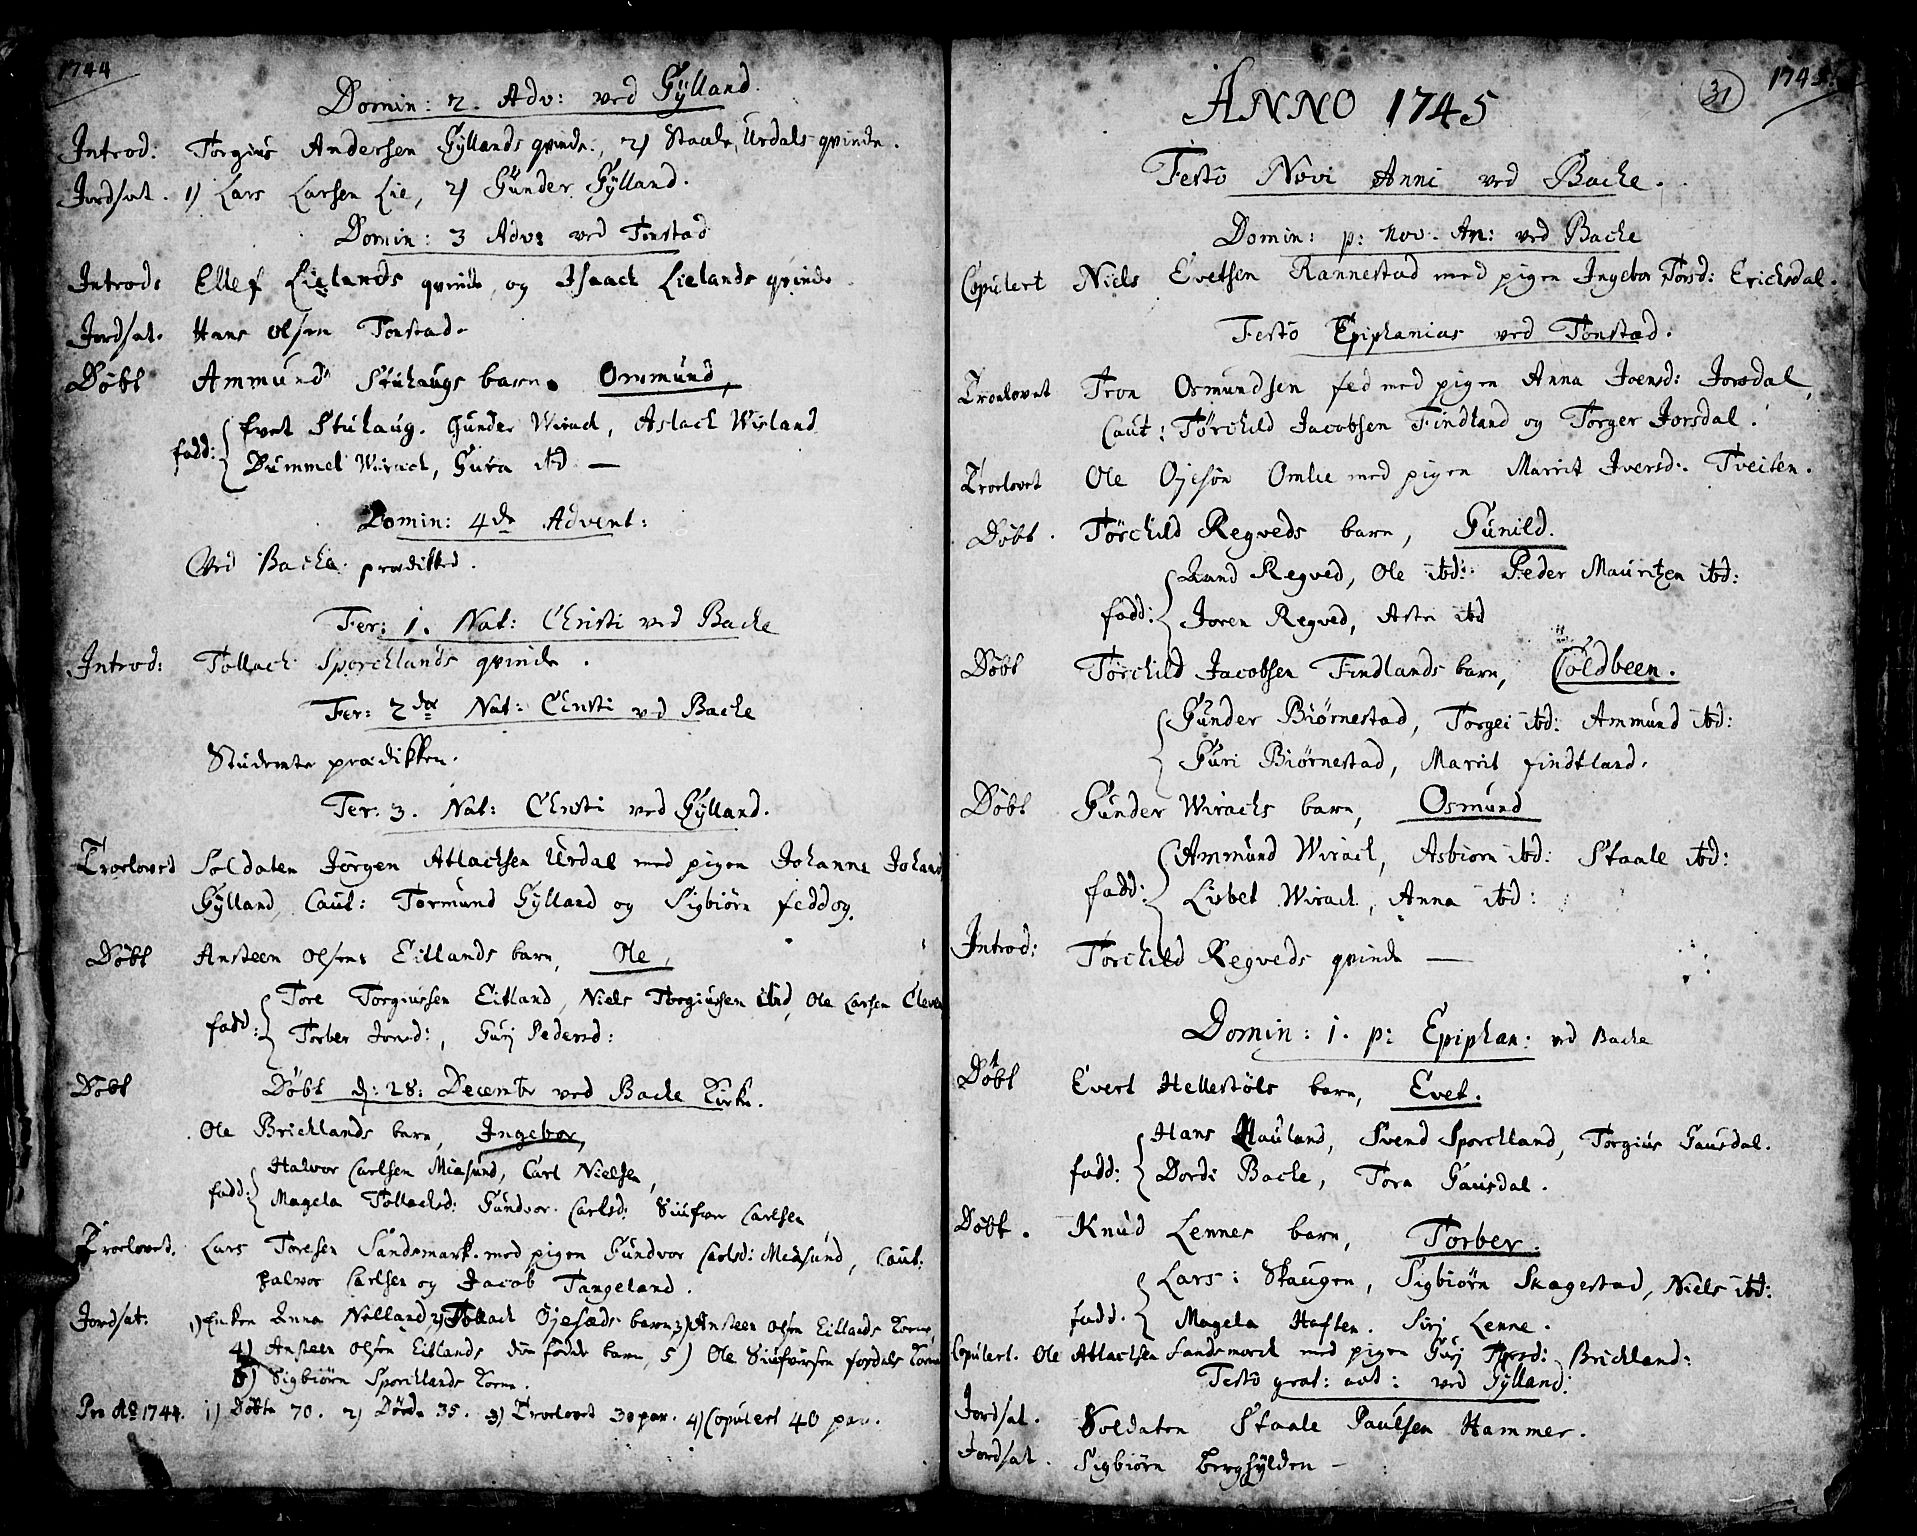 1744
Domin: 2. Adv: ved Gÿlland.
Introd: Torgius Andersen Gÿllands qvinde, 2) Staale Urdals qvinde.
Jordsat. 1) Lars Larsen Lie, 2) Gunder Gÿlland.
Domin: 3 Adv: ved Tonstad
Introd: Ellef Lielands qvinde, og Isaach Lielands qvinde
Jordsat. Hans Olsen Tonstad.
Döbt Ammund Stuhaugs barn. Ommund,
Evet Stuhaug. Gunder Wirach, Aslach Wirland
fadd: Dummel Wirach, Gura ibd —
Domin: 4de Advent:
Ved Bache prædikked.
Fer: 1. Nat: Christi ved Bache
Introd: Tollach Sporchlands qvinde.
Fer: 2den Nat: Christi ved Bache
Studente prædikken.
Fer: 3. Nat: Christi ved Gÿlland.
Troelovet Soldaten Jörgen Atlachsen Urdal med pigen Johanna Johans
Gÿlland, Caut: Tormund Gÿlland og Sigbiörn feddog.
Döbt Ansteen Olsens Eitlands barn, Ole,
Tore Torgiussen Eitland, Niels Torgiussen ibd, Ole Larsen Cleven
fadd: Torber Jonsd:, Guri Pedersd:
Döbt Döbt d: 28: Decembr ved Bache Kirke.
Ole Brichlands barn, Ingebor,
Halvor Carlsen Miasund, Carl Nielsen,
fadd: Magela Tollachsd: Gundvor Carlsd: Siufver Carlsen
Troelovet. Lars Toresen Sandsmark med pigen Gundvor Carlsd: Miasund, Caut:
Halvor Carlsen og Jacob Tangeland.
Jordsat: 1) Enken Anna Nolland, 2) Tollach Öjesæds barn, 3) Ansteen Olsen Eitlands Kone,
4) Ansteen Olsen Eitlands barn, 5) Ole Siufversen fordals Kone
6) Sigbiörn Sporchlands Kone.
Pro Ao 1744. 1) Döbte 70. 2) Döde 35. 3) Troelovet 30 par. 4) Copulert 40 par.
31 1745
ANNO 1745
Festo Novi Anni ved Bache.
Domin: p: Nov. An: ved Bache
Copulert Niels Evetsen Rannestad med pigen Ingebor Torsd: Erichsdal.
Festo Epiphanias ved Tonstad.
Troelovet Tron Osmundsen fed med pigen Anna Joensd: Josdal,
Caut: Törchild Jacobsen Findland og Torger Josdal.
Troelovet Ole Ojesön Omlie med pigen Marrit Iversd: Tveiten.
Döbt. Törchild Regveds barn, Gunild.
Rand Regved, Ole ibd: Peder Mauritzen ibd:
fadd: Joren Regved, Aste ibd
Döbt Törchild Jacobsen Findlands barn, Coldbeen.
Gunder Biørnestad, Torgei ibd: Ammund ibd:
Guri Biørnestad, Marrit findtland.
Döbt Gunder Wirachs barn, Osmund
Ammund Wirach, Asbiorn ibd: Staale ibd:
fadd: Lisbet Wirach, Anna ibd:
Introd: Törchild Regveds qvinde —
Domin: 1. p: Epiphan: ved Bache
Döbt Evert Hellestöls barn, Evet.
Hans Hauland, Svend Sporchland, Torgius Gausdal.
fadd: Dordi Bache, Tora Gausdal.
Döbt. Knud Lennes barn, Torber.
Lars Skaugen, Sigbiörn Skagestad, Niels ibd:
fadd. Magela Haften. Siri Lenne.
Copulert. Ole Atlachsen Sandsmarck med pigen Guri Torsd: Brichland:
Festo grat: act: ved Gÿlland:
Jordsat. Soldaten Staale Paulsen Hammer.
Jordsat. Sigbiörn Berghylden —